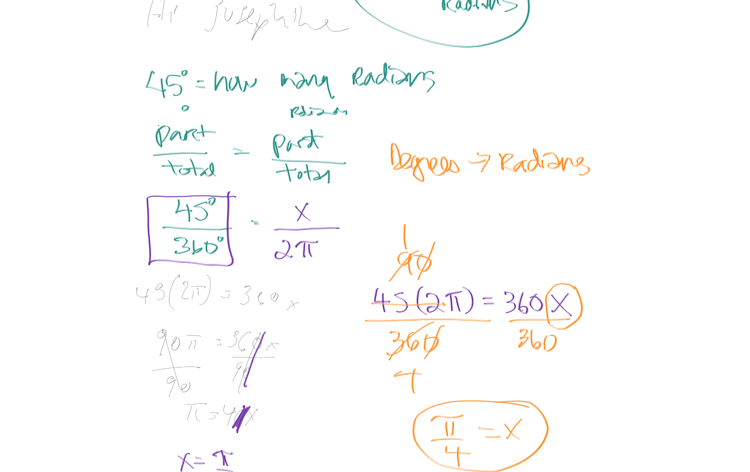 Hi Josephine
Radians
45° = how many Radians
° Radians
part/total = part/total
Degrees → Radians
45°/360° = x/2π
45(2π) = 360x
90π/90 = 360x/90
π = 4x
x = π
1
90
45(2π)/360 = 360x/360
4
π/4 = x